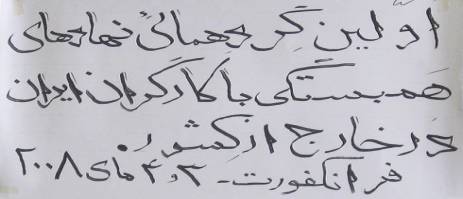 اولین گردهمائی نهادهای
همبستگی با کارگران ایران
در خارج از کشور.
فرانکفورت - ۳ و ۴ مای ۲۰۰۸